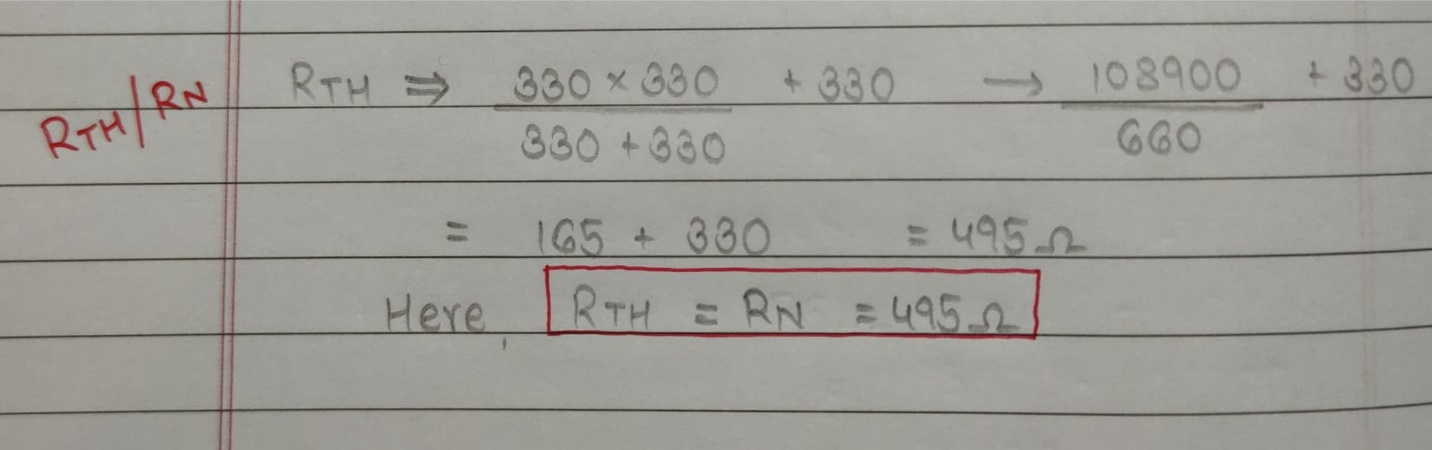 RTH/RN
RTH ⇒ 330 × 330 / 330 + 330 + 330 → 108900 / 660 + 330
= 165 + 330 = 495 Ω
Here, RTH = RN = 495 Ω